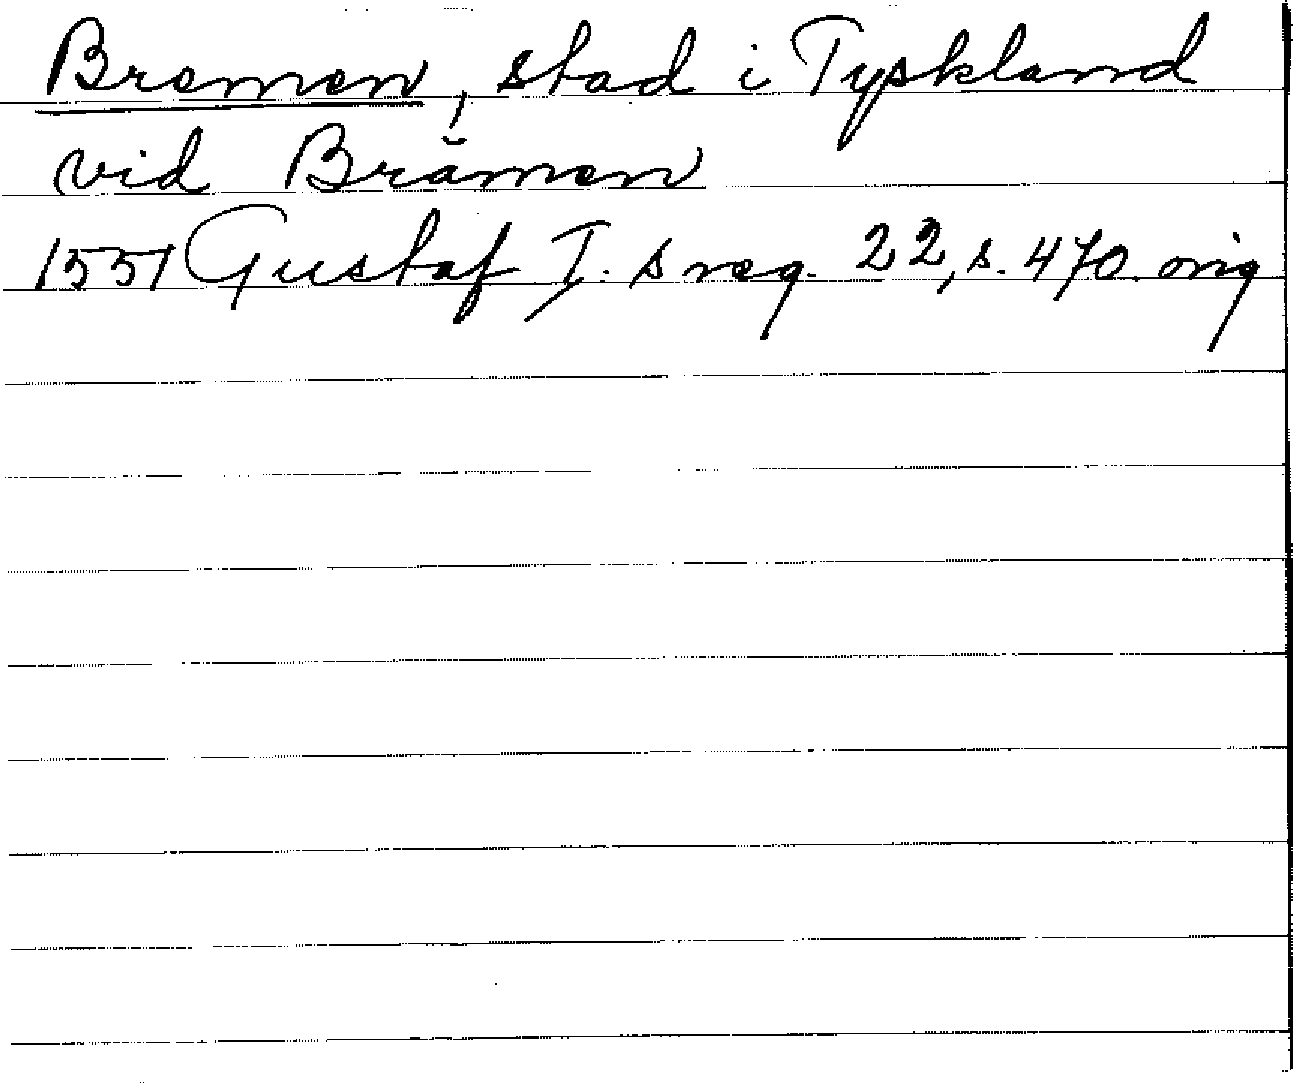 Bremen, stad i Tyskland
vid Brämen
1551 Gustaf I:s reg. 22, s. 470. orig